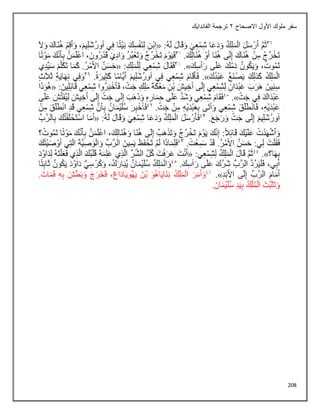 سفر ملوك الأول الاصحاح ٢ ترجمة الفاندايك
٣٦ثُمَّ أَرْسَلَ الْمَلِكُ وَدَعَا شِمْعِيَ وَقَالَ لَهُ: «ابْنِ لِنَفْسِكَ بَيْتًا فِي أُورُشَلِيمَ، وَأَقِمْ هُنَاكَ وَلاَ
تَخْرُجْ مِنْ هُنَاكَ إِلَى هُنَا أَوْ هُنَالِكَ. ٣٧فَيَوْمَ تَخْرُجُ وَتَعْبُرُ وَادِيَ قَدْرُونَ، اعْلَمَنَّ بِأَنَّكَ مَوْتًا
تَمُوتُ، وَيَكُونُ دَمُكَ عَلَى رَأْسِكَ». ٣٨فَقَالَ شِمْعِي لِلْمَلِكِ: «حَسَنٌ الأَمْرُ. كَمَا تَكَلَّمَ سَيِّدِي
الْمَلِكُ كَذلِكَ يَصْنَعُ عَبْدُكَ». فَأَقَامَ شِمْعِي فِي أُورُشَلِيمَ أَيَّامًا كَثِيرَةً. ٣٩وَفِي نِهَايَةِ ثَلاَثِ
سِنِينَ هَرَبَ عَبْدَانِ لِشِمْعِي إِلَى أَخِيشَ بْنِ مَعْكَةَ مَلِكِ جَتَّ، فَأَخْبَرُوا شِمْعِي قَائِلِينَ: «هُوَذَا
عَبْدَاكَ فِي جَتَّ». ٤٠فَقَامَ شِمْعِي وَشَدَّ عَلَى حِمَارِهِ وَذَهَبَ إِلَى جَتَّ إِلَى أَخِيشَ لِيُفَتِّشَ عَلَى
عَبْدَيْهِ، فَانْطَلَقَ شِمْعِي وَأَتَى بِعَبْدَيْهِ مِنْ جَتَّ. ٤١فَأُخْبِرَ سُلَيْمَانُ بِأَنَّ شِمْعِي قَدِ انْطَلَقَ مِنْ
أُورُشَلِيمَ إِلَى جَتَّ وَرَجَعَ. ٤٢فَأَرْسَلَ الْمَلِكُ وَدَعَا شِمْعِيَ وَقَالَ لَهُ: «أَمَا اسْتَحْلَفْتُكَ بِالرَّبِّ
وَأَشْهَدْتُ عَلَيْكَ قَائِلاً: إِنَّكَ يَوْمَ تَخْرُجُ وَتَذْهَبُ إِلَى هُنَا وَهُنَالِكَ، اعْلَمَنَّ بِأَنَّكَ مَوْتًا تَمُوتُ؟
فَقُلْتَ لِي: حَسَنٌ الأَمْرُ. قَدْ سَمِعْتُ. ٤٣فَلِمَاذَا لَمْ تَحْفَظْ يَمِينَ الرَّبِّ وَالْوَصِيَّةَ الَّتِي أَوْصَيْتُكَ
بِهَا؟». ٤٤ثُمَّ قَالَ الْمَلِكُ لِشِمْعِي: «أَنْتَ عَرَفْتَ كُلَّ الشَّرِّ الَّذِي عَلِمَهُ قَلْبُكَ الَّذِي فَعَلْتَهُ لِدَاوُدَ
أَبِي، فَلْيَرُدَّ الرَّبُّ شَرَّكَ عَلَى رَأْسِكَ. ٤٥وَالْمَلِكُ سُلَيْمَانُ يُبَارَكُ، وَكُرْسِيُّ دَاوُدَ يَكُونُ ثَابِتًا
أَمَامَ الرَّبِّ إِلَى الأَبَدِ». ٤٦وَأَمَرَ الْمَلِكُ بَنَايَاهُو بْنَ يَهُويَادَاعَ، فَخَرَجَ وَبَطَشَ بِهِ فَمَاتَ.
وَتَثَبَّتَ الْمُلْكُ بِيَدِ سُلَيْمَانَ.
208